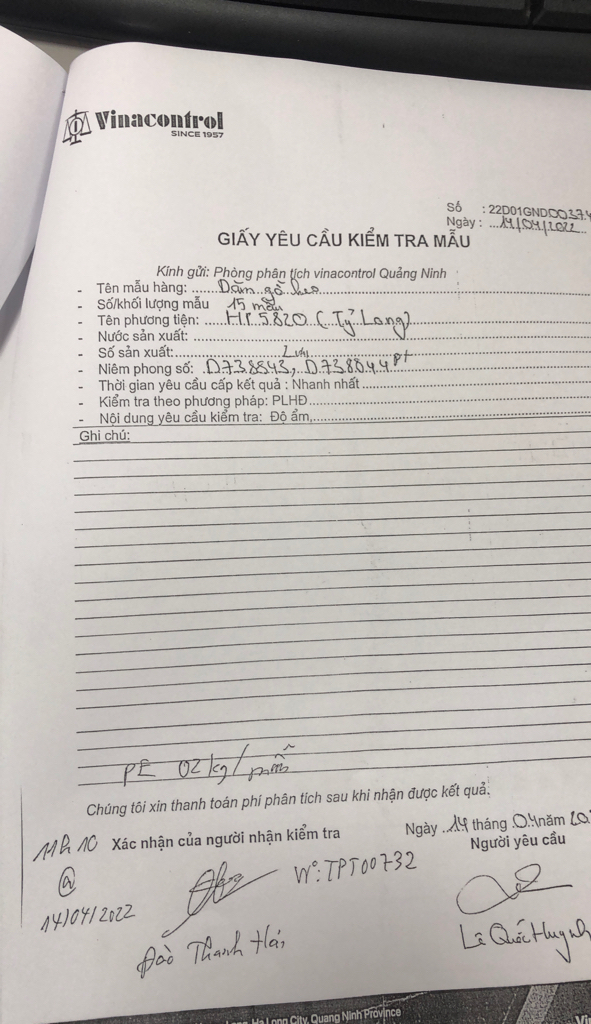 Vinacontrol
SINCE 1957
Số : 22D01GND00374
Ngày : ...14/04/2022
GIẤY YÊU CẦU KIỂM TRA MẪU
Kính gửi: Phòng phân tích vinacontrol Quảng Ninh
- Tên mẫu hàng: Dăm gỗ keo
- Số/khối lượng mẫu 15 mẫu
- Tên phương tiện: HP5820 (Tỷ Long)
- Nước sản xuất:
- Số sản xuất:
- Niêm phong số: D738843, D738844
- Thời gian yêu cầu cấp kết quả : Nhanh nhất
- Kiểm tra theo phương pháp: PLHĐ
- Nội dung yêu cầu kiểm tra: Độ ẩm,
Ghi chú:
PE 02kg/mẫu
Chúng tôi xin thanh toán phí phân tích sau khi nhận được kết quả.
Ngày 14 tháng 04 năm 20
11h10 Xác nhận của người nhận kiểm tra
Người yêu cầu
@
N°: TPT00732
14/04/2022
Đào Thanh Hải
Lê Quốc Huynh
Ha Long City, Quang Ninh Province